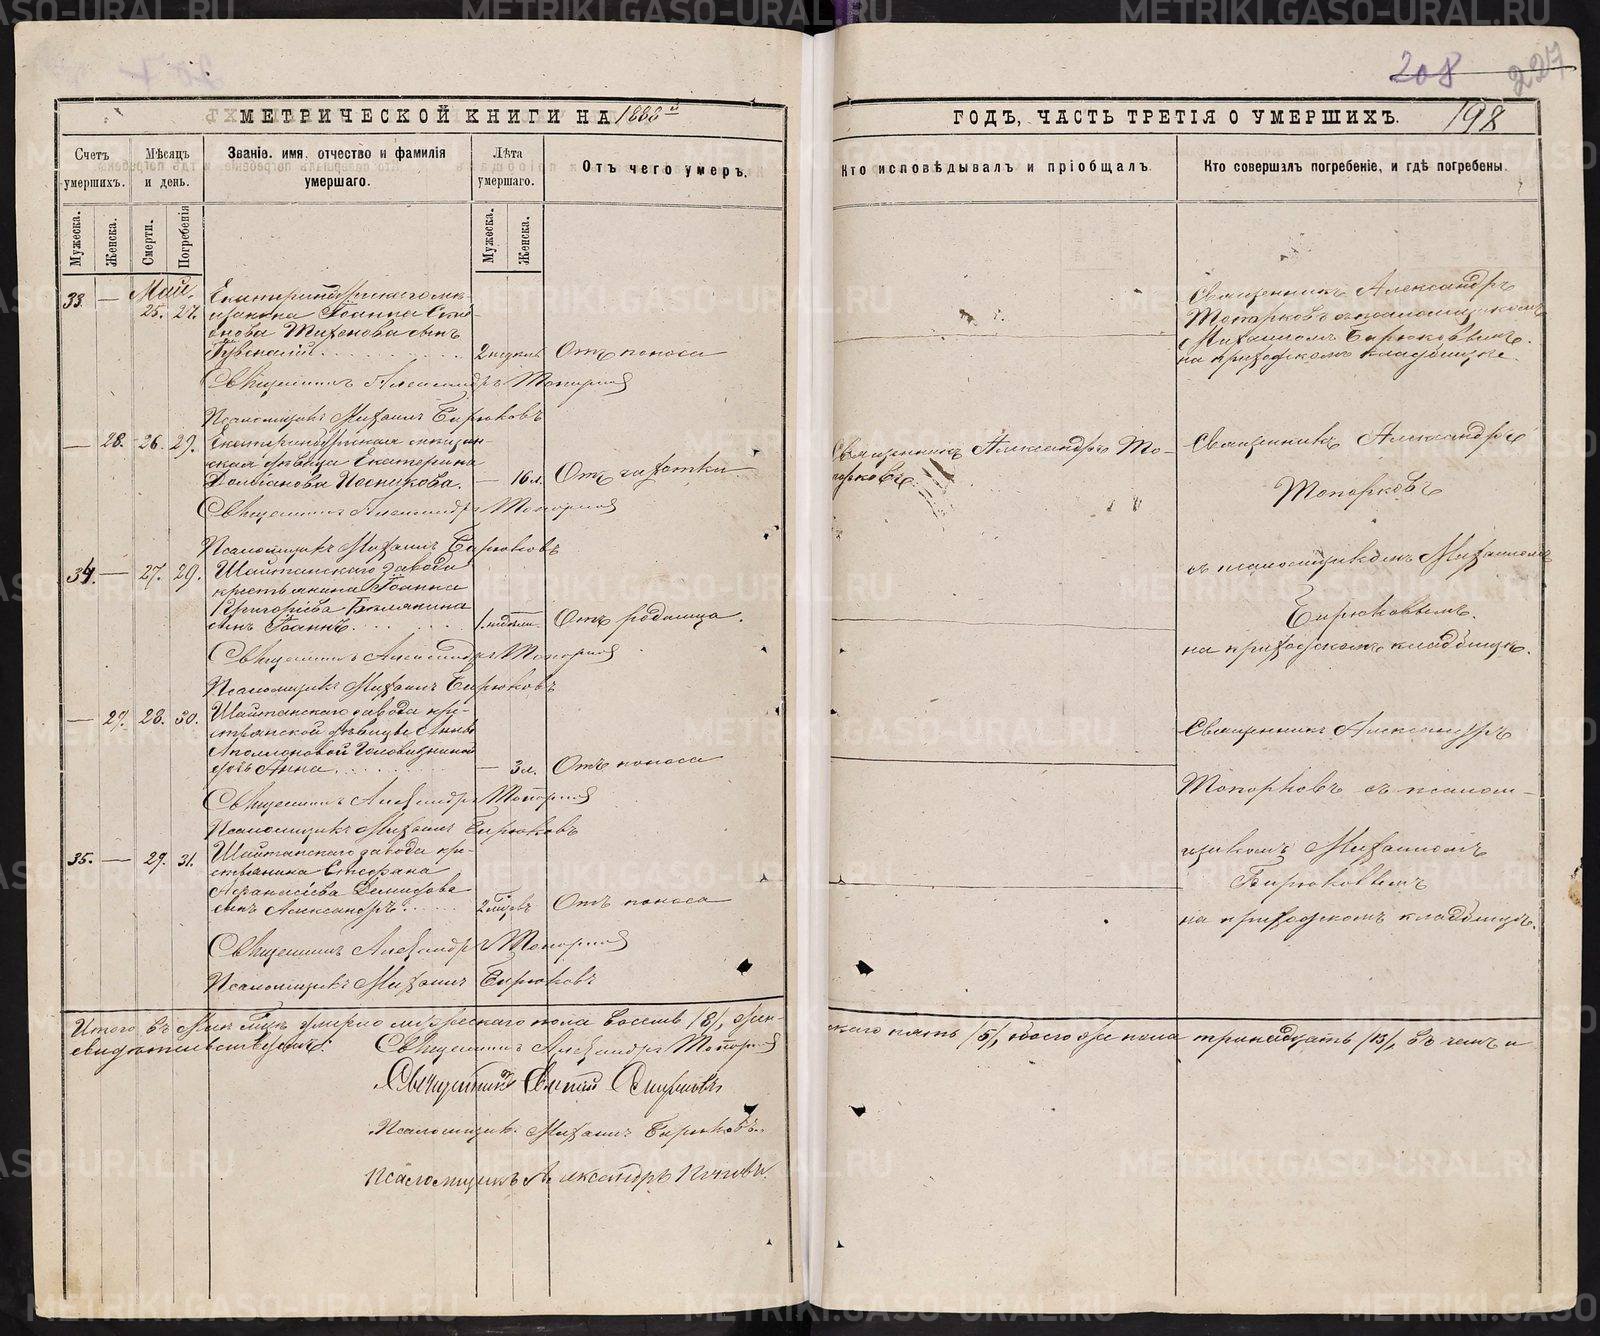 208
227
МЕТРИЧЕСКОЙ КНИГИ НА 1888й
ГОДЪ, ЧАСТЬ ТРЕТІЯ О УМЕРШИХЪ.
198
Счетъ умершихъ.
Мѣсяцъ и день.
Званіе. имя. отчество и фамилія умершаго.
Лѣта умершаго.
Отъ чего умеръ.
Кто исповѣдывалъ и пріобщалъ.
Кто совершалъ погребеніе, и гдѣ погребены.
Мужеска.
Женска.
Смерти.
Погребенія
Мужеска.
Женска.
33. — Май. 25. 27.
Екатеринбургскаго мѣ-
щанина Іоанна
сынъ
2 недѣль Отъ поноса
Священникъ Александръ Топорковъ
Псаломщикъ Михаилъ Бирюковъ
Священникъ Александръ
Топорковъ съ псаломщикомъ
Михаиломъ Бирюковымъ.
на приходскомъ кладбищѣ.
— 28. 26. 29.
Екатеринбургская мѣщан-
ская дѣвица Екатерина
Посникова. — 16 л. Отъ чахотки
Священникъ Александръ Топорковъ
Псаломщикъ Михаилъ Бирюковъ
Священникъ Александръ То-
порковъ.
Священникъ Александръ
Топорковъ
съ псаломщикомъ Михаиломъ
Бирюковымъ.
на приходскомъ кладбищѣ.
34. — 27. 29.
Шайтанскаго завода
крестьянина Іоанна
Григоріева
сынъ Іоаннъ
1. недѣли. Отъ родимца.
Священникъ Александръ Топорковъ
Псаломщикъ Михаилъ Бирюковъ
— 29. 28. 30.
Шайтанскаго завода кре-
стьянской дѣвицы Анны
Аполлоновой
дочь Анна — 3 л. Отъ поноса
Священникъ Александръ Топорковъ
Псаломщикъ Михаилъ Бирюковъ
Священникъ Александръ
Топорковъ съ псалом-
щикомъ Михаиломъ
Бирюковымъ
на приходскомъ кладбищѣ.
35. — 29. 31.
Шайтанскаго завода кре-
стьянина Стефана
Афанасіева Демидова
сынъ Александръ
Отъ поноса
Священникъ Александръ Топорковъ
Псаломщикъ Михаилъ Бирюковъ
Итого въ Маѣ м-цѣ умерло мужескаго пола восемь /8/, жен-
скаго пять /5/, обоего же пола тринадцать /13/, въ чемъ и
свидѣтельствуемъ: Священникъ Александръ Топорковъ
Священникъ Смирновъ
Псаломщикъ Михаилъ Бирюковъ.
Псаломщикъ Александръ Поповъ.